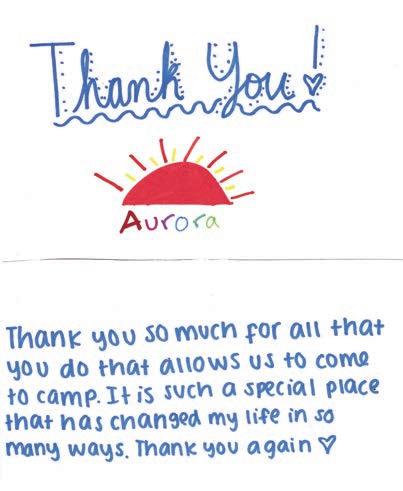 Thank You!
Aurora
Thank you so much for all that
you do that allows us to come
to camp. It is such a special place
that has changed my life in so
many ways. Thank you again ♡